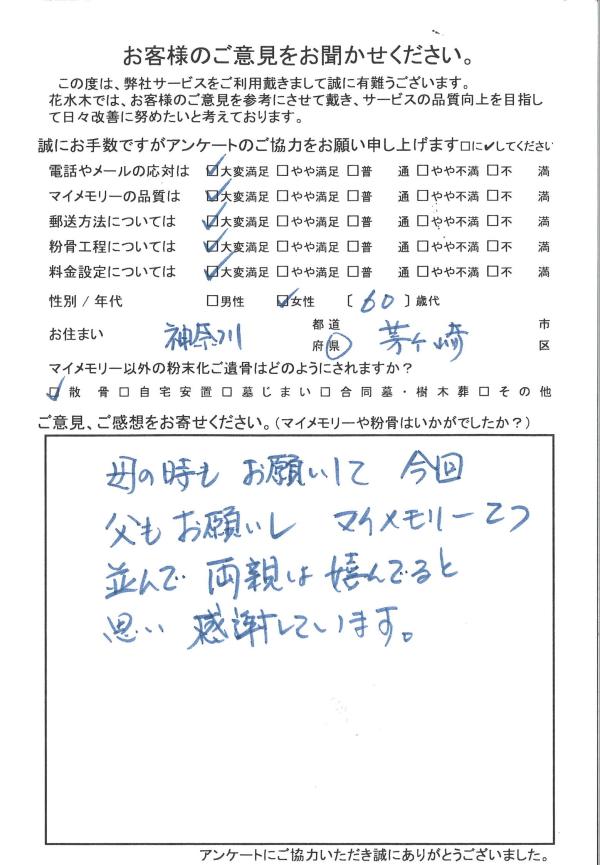 お客様のご意見をお聞かせください。
この度は、弊社サービスをご利用戴きまして誠に有難うございます。
花水木では、お客様のご意見を参考にさせて戴き、サービスの品質向上を目指し
て日々改善に努めたいと考えております。
誠にお手数ですがアンケートのご協力をお願い申し上げます□に✔してください
電話やメールの応対は ☑大変満足 □やや満足 □普 通 □やや不満 □不 満
マイメモリーの品質は ☑大変満足 □やや満足 □普 通 □やや不満 □不 満
郵送方法については ☑大変満足 □やや満足 □普 通 □やや不満 □不 満
粉骨工程については ☑大変満足 □やや満足 □普 通 □やや不満 □不 満
料金設定については ☑大変満足 □やや満足 □普 通 □やや不満 □不 満
性別 / 年代 □男性 ☑女性 〔 60 〕歳代
お住まい 神奈川 都道府県 茅ヶ崎 市区
マイメモリー以外の粉末化ご遺骨はどのようにされますか?
☑散 骨 □自宅安置 □墓じまい □合同墓・樹木葬 □その他
ご意見、ご感想をお寄せください。(マイメモリーや粉骨はいかがでしたか?)
母の時も お願いして 今回
父もお願いし マイメモリー2つ
並んで 両親は 嬉んでると
思い 感謝しています。
アンケートにご協力いただき誠にありがとうございました。